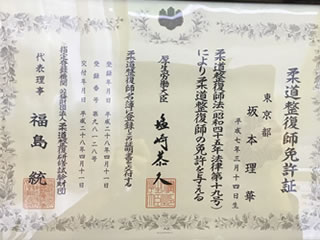 柔道整復師免許証
東京都
坂本理華
平成七年三月十四日生
柔道整復師法（昭和四十五年法律第十九号）
により柔道整復師の免許を与える
厚生労働大臣
塩崎恭久
柔道整復師名簿に登録しこの証明書を交付する
登録年月日 平成二十八年四月十一日
登録番号 第九八一二八号
交付年月日 平成二十八年四月十一日
指定登録機関 公益財団法人柔道整復研修試験財団
代表理事 福島統